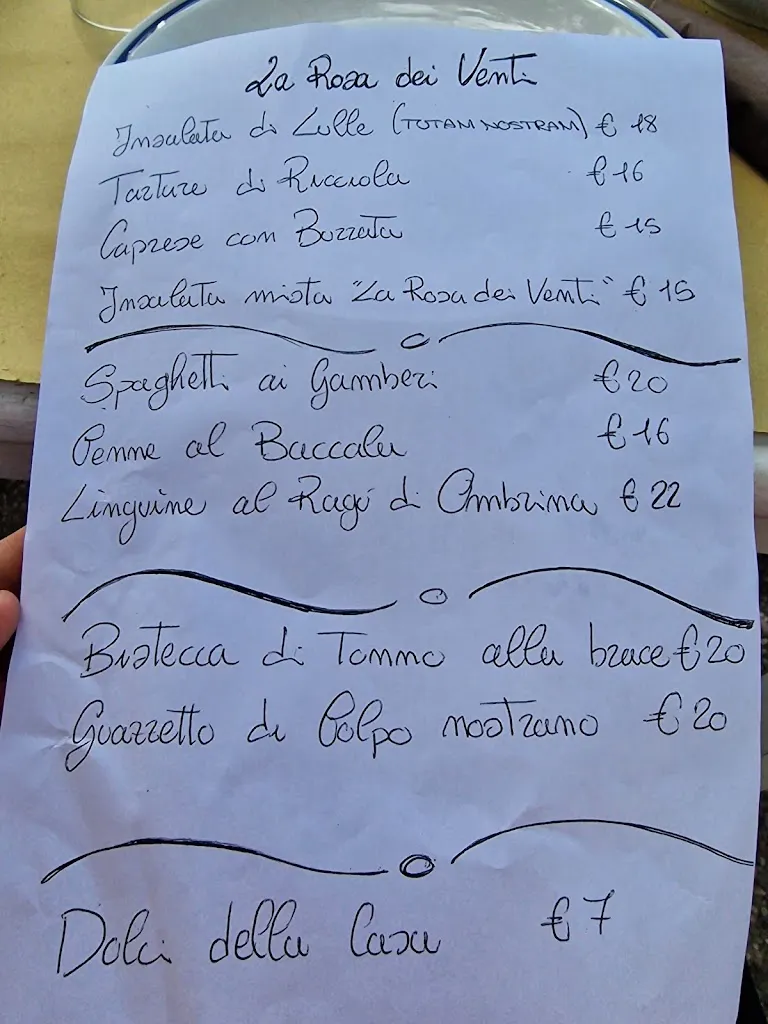 La Rosa dei Venti
Insalata di Lulle (TOTANI NOSTRANI) € 18
Tartare di Ricciola € 16
Caprese con Burrata € 15
Insalata mista "La Rosa dei Venti" € 15
Spaghetti ai Gamberi € 20
Penne al Baccala € 16
Linguine al Ragù di Ombrina € 22
Bistecca di Tonno alla brace € 20
Guazzetto di Polpo nostrano € 20
Dolci della Casa € 7